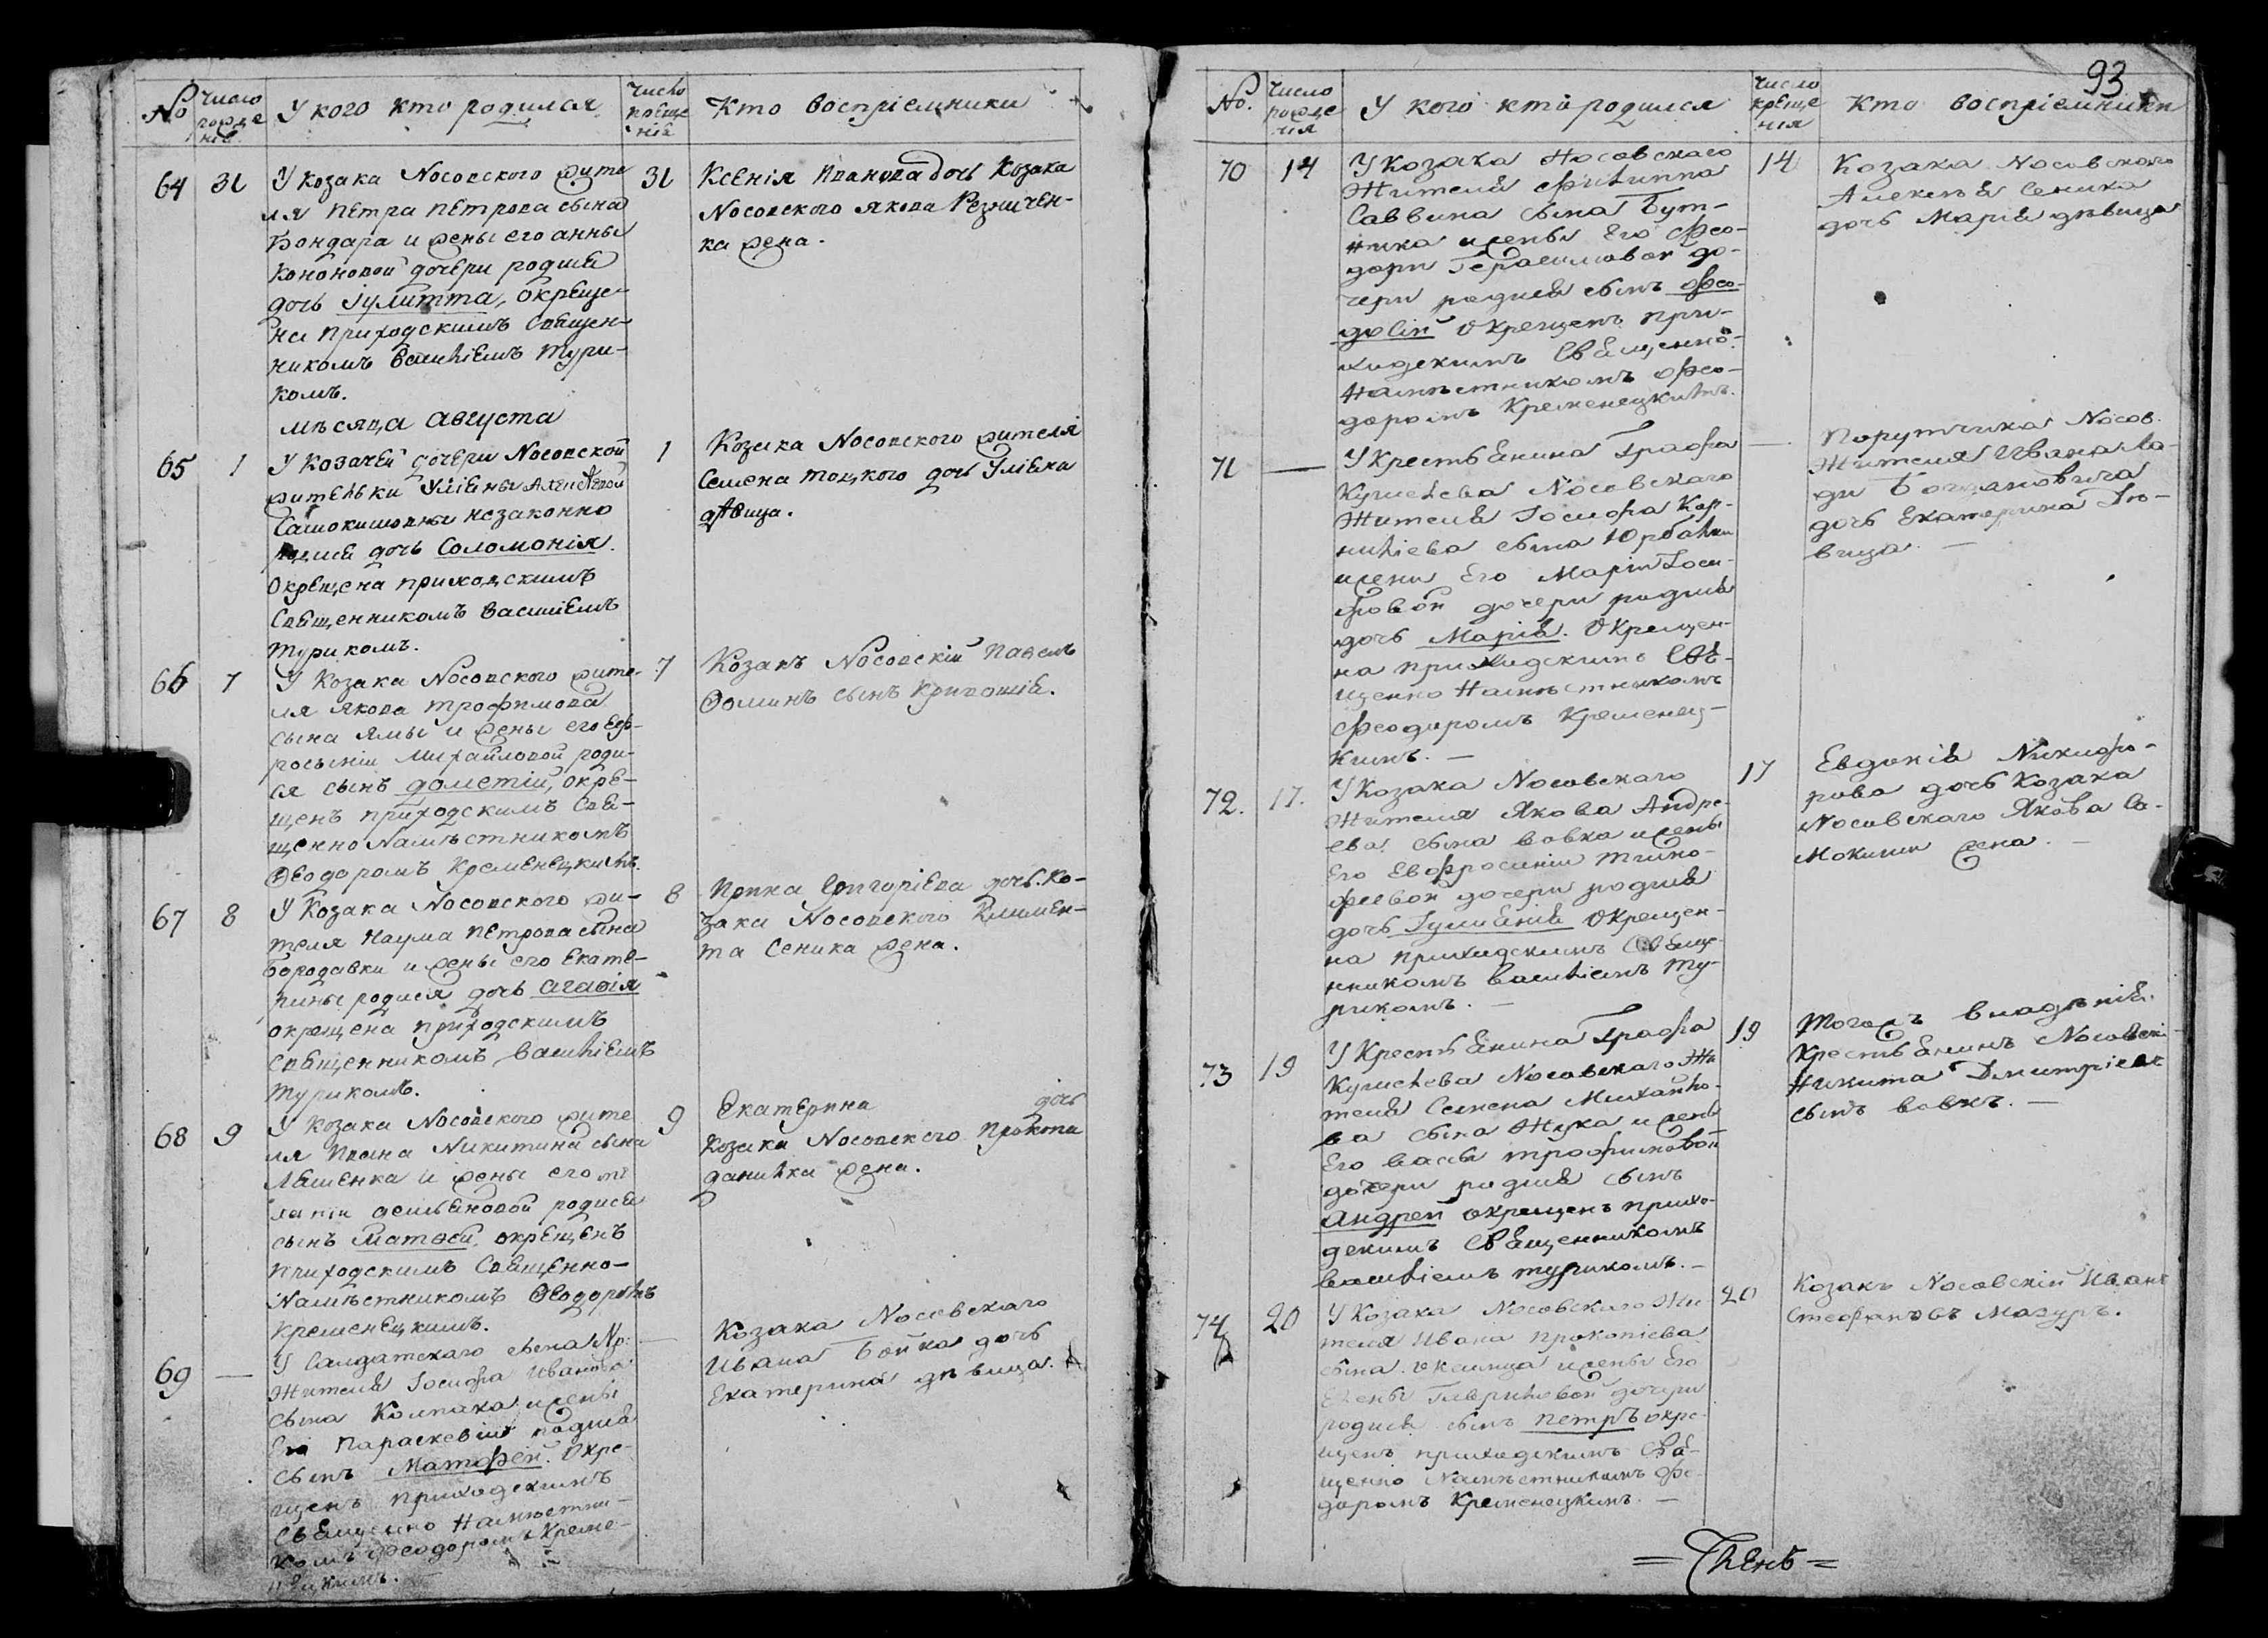 No
Число рожде нія
У кого кто родился
Число креще нія
Кто воспріемники
64
31
У козака Носовского жите
ля Петра Петрова сына
Бондара и жены его Анны
Кононовой дочери родися
дочь Іулитта, окреще-
на приходскимъ Священ-
никомъ Василіемъ Тури-
комъ.
31
Ксенія Иванова дочь Козака
Носовского Якова Резничен-
ка жена.
мѣсяца Августа
65
1
У козачей дочери Носовской
жительки Уліяны
незаконно
родися дочь Соломонія.
Окрещена приходскимъ
Священникомъ Василіемъ
Туrикомъ.
1
Козака Носовского жителя
Семена Тоцкого дочь
дѣвица.
66
7
У Козака Носовского жите-
ля Якова Трофимова
сына Ямы и жены его Еф-
росыніи Михайловой роди-
ся сынъ Дометій, окре-
щенъ приходскимъ Свя-
щенно Намѣстникомъ
Ѳеодоромъ Кременецкимъ.
7
Козакъ Носовскій Павелъ
Ѳоминъ сынъ Кривошія.
67
8
У Козака Носовского жи-
теля Наума Петрова сына
Бородавки и жены его Екате-
рины родися дочь Агафія
окрещена приходскимъ
Священникомъ Василіемъ
Туrикомъ.
8
Ирина Григоріева дочь Ко-
зака Носовского Климен-
та Сеника жена.
68
9
У Козака Носовского жите
ля Ивана Никитина сына
Ляшенка и жены его
родися
сынъ Матѳей. окрещенъ
приходскимъ Священно-
Намѣстникомъ Ѳеодоромъ
Кременецкимъ.
9
Екатерина дочь
Козака Носовского Прокопа
Данилка жена.
69
—
У Салдатскаго сына Но:
Жителя Іосифа Иванова
сына Колпака и жены
Его Параскевіи родися
сынъ Матфей. Окре-
щенъ приходскимъ
Священно Намѣстни-
комъ Феодоромъ Креме-
нецкимъ.
—
Козака Носовскаго
Ивана Бойка дочь
Екатерина дѣвица.
93
No.
Число рожде нія
У кого кто родился
Число креще нія
Кто воспріемники
70
14
У Козака Носовскаго
Жителя Филиппа
Саввина сына Бут-
ника и жены Его Фео-
доры Герасимовой до-
чери родися сынъ Фео-
досій окрещенъ при-
ходскимъ Священно-
Намѣстникомъ Фео-
доромъ Кременецкимъ.
14
Козака Носовского
Алексѣя Сеника
дочь Марія дѣвица
71
—
У Крестьянина Графа
Кушелева Носовскаго
Жителя Іосифа Кор-
нилieва сына Юрбалки
и жены Его Маріи Іоси-
фовой дочери родися
дочь Марія. Окрещен-
на приходскимъ Свя-
щенно Намѣстникомъ
Феодоромъ Кременец-
кимъ. —
—
Порутчика Носов.
Жителя Ивана
Богдановича
дочь Екатерина Дѣ-
вица. —
72.
17.
У Козака Носовскаго
Жителя Якова Андре-
ева сына Вовка и жены
Его Евфросиніи Тимо-
феевой дочери родися
дочь Іуліанія Окрещен-
на приходскимъ Свяще-
нникомъ Василіемъ Ту-
рикомъ. —
17
Евдокія Никифо-
рова дочь Козака
Носовскаго Якова Са-
мокиши жена. —
73
19
У Крестьянина Графа
Кушелева Носовскаго Жи
теля Семена Михайло-
ва сына Жука и жены
Его Вассы Трофимовой
дочери родися сынъ
Андрей окрещенъ прихо-
дскимъ Священникомъ
Василіемъ Туrикомъ. —
19
Тогожъ владѣнія
Крестьянинъ Носовскі
Никита Дмитріевъ
сынъ Вовкъ. —
74
20
У Козака Носовскаго Жи
теля Ивана Прокопіева
сына и жены Его
Елены Гавриловой дочери
родися сынъ Петръ окре-
щенъ приходскимъ Свя-
щенно Намѣстникомъ Фео-
доромъ Кременецкимъ. —
20
Козакъ Носовскій Иванъ
Стефановъ Мазуръ.
= Членъ =